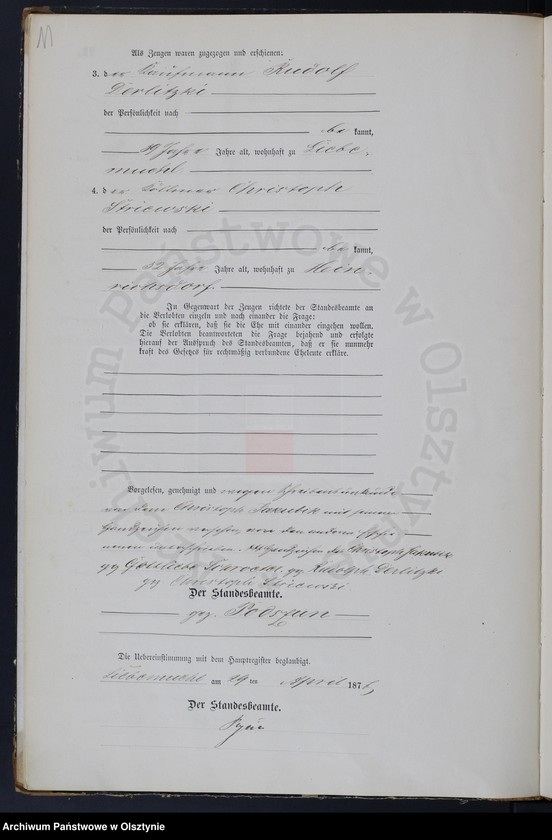 Als Zeugen waren zugezogen und erschienen:
3. der Kaufmann Rudolf
Derlitzki
der Persönlichkeit nach
be kannt,
Jahre alt, wohnhaft zu Liebe-
muehl
4. der Christoph
Striewski
der Persönlichkeit nach
be kannt,
52 Jahre Jahre alt, wohnhaft zu Hein-
richsdorf
In Gegenwart der Zeugen richtete der Standesbeamte an
die Verlobten einzeln und nach einander die Frage:
ob sie erklären, daß sie die Ehe mit einander eingehen wollen.
Die Verlobten beantworteten die Frage bejahend und erfolgte
hierauf der Ausspruch des Standesbeamten, daß er sie nunmehr
kraft des Gesetzes für rechtmäßig verbundene Eheleute erkläre.
Vorgelesen, genehmigt und wegen Schreibensunkunde
von dem Christoph Jakubek mit seinem
Handzeichen versehen, von den anderen
unterschrieben. Handzeichen des Christoph Jakubek
gez Gottliebe gez Rudolph Derlitzki
gez Christoph Striewski
Der Standesbeamte.
gez. Podszun
Die Uebereinstimmung mit dem Hauptregister beglaubigt.
Liebemuehl am 19 ten April 187
Der Standesbeamte.
Archiwum Państwowe w Olsztynie
Archiwum Państwowe w Olsztynie